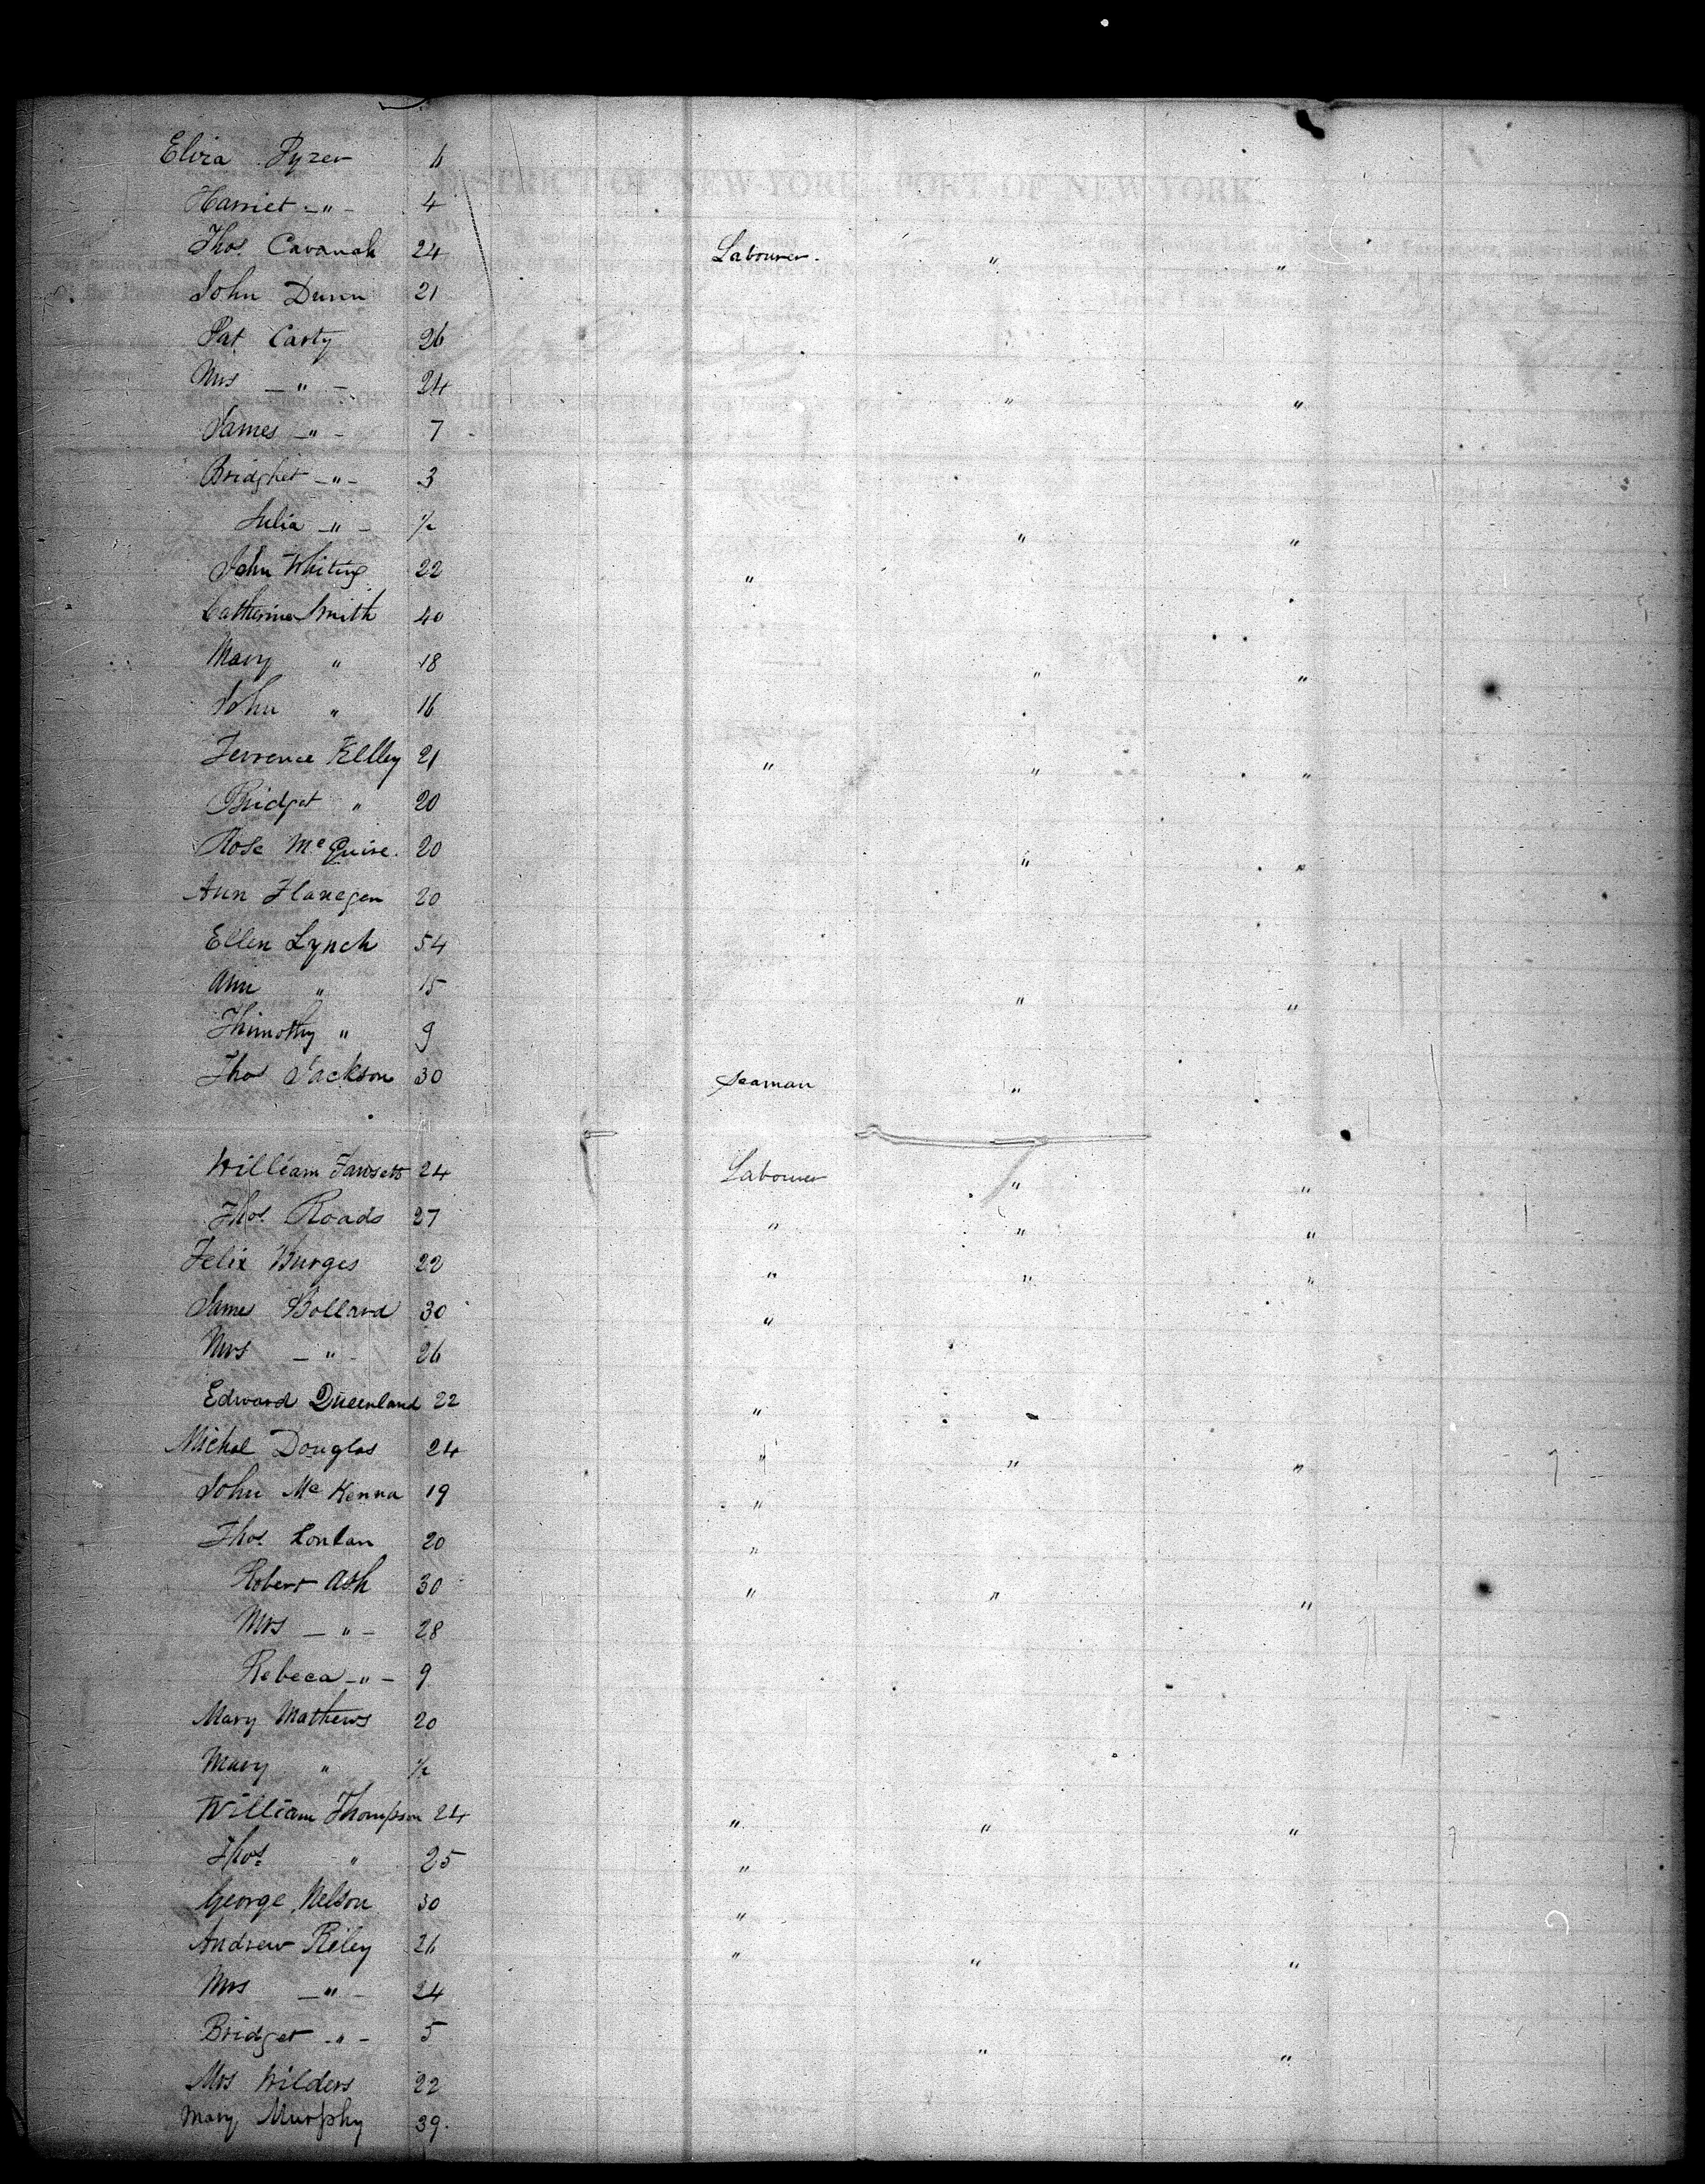 Eliza Pyzer 6
Harriet -"- 4
Thos Cavanah 24 Labourer. " "
John Dunn 21
Pat Carty 26
Mrs -"- 24 " "
James -"- 7
Bridghet -"- 3
Julia -"- 1/2 " "
John Whiting 22 "
Catherine Smith 40
Mary " 18 " "
John " 16
Terrence Kelley 21 " " "
Bridget " 20
Rose McGuire. 20 " "
Ann Flanegen 20
Ellen Lynch 54
Ann " 15 " "
Thimothy " 9
Thos Jackson 30 Seaman "
William Fawsett 24 Labourer " "
Thos. Roads 27 " " "
Felix Burges 22 " " "
James Bollard 30 "
Mrs -"- 26
Edward Queenland 22 "
Michal Douglas 24 " " "
John McKenna 19 "
Thos. Conlan 20 "
Robert Ash 30 " " "
Mrs -"- 28
Rebeca -"- 9
Mary Mathews 20
Mary " 1/2
William Thompson 24 " " "
Thos. " 25 "
George Nelson 30 "
Andrew Riley 26 " " "
Mrs -"- 24
Bridget -"- 5 " "
Mrs Wilders 22
Mary Murphy 39.
DISTRICT OF NEW-YORK PORT OF NEW-YORK